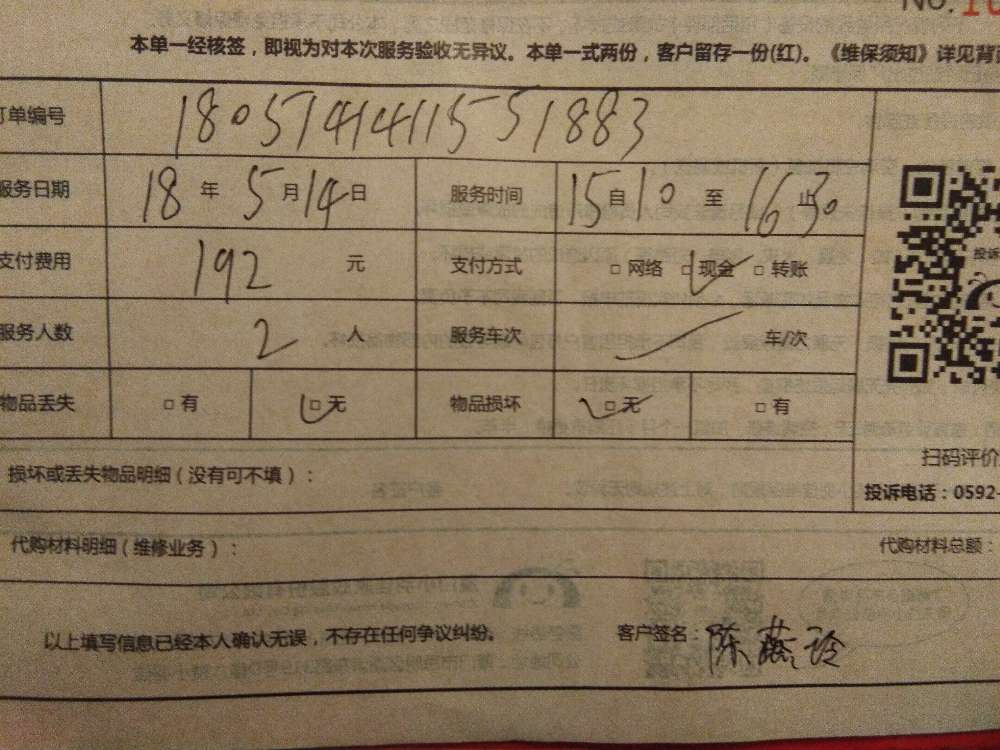 NO.
本单一经核签，即视为对本次服务验收无异议。本单一式两份，客户留存一份(红)。《维保须知》详见背
订单编号 180514144115551883
服务日期 18 年 5 月 14 日 服务时间 15 自 10 至 16 止 30
支付费用 192 元 支付方式 □ 网络 □ 现金 □ 转账
服务人数 2 人 服务车次 车/次
物品丢失 □ 有 □ 无 物品损坏 □ 无 □ 有
投诉
扫码评价
损坏或丢失物品明细（没有可不填）：
投诉电话：0592-
代购材料明细（维修业务）： 代购材料总额：
以上填写信息已经本人确认无误，不存在任何争议纠纷。 客户签名：陈燕玲